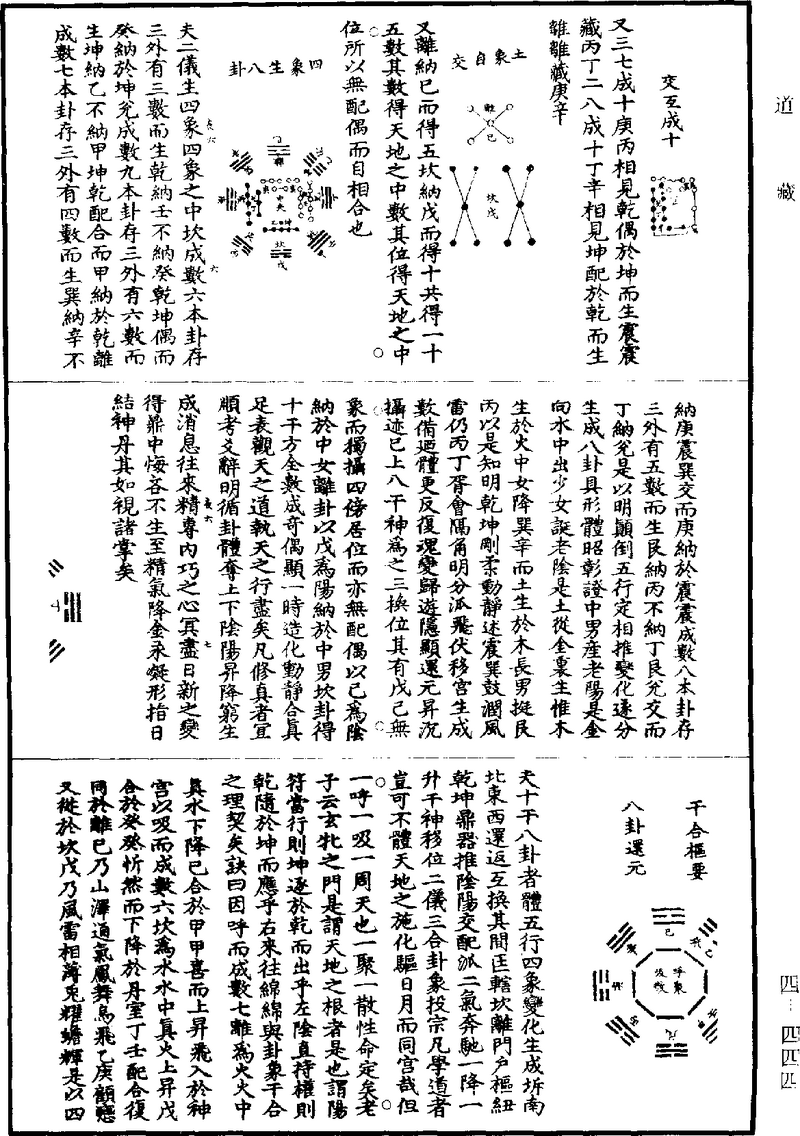 道藏
交互成十
又三七成十庚丙相見乾偶於坤而生震震
藏丙丁二八成十丁辛相見坤配於乾而生
離離藏庚辛
土象自交
離
己
坎戊
又離納己而得五坎納戊而得十共得一十
五數其數得天地之中數其位得天地之中
位所以無配偶而自相合也
四象生八卦
離
中央
坎
戊
夫二儀生四象四象之中坎成數六本卦存
三外有三數而生乾納壬不納癸乾坤偶而
癸納於坤兌成數九本卦存三外有六數而
生坤納乙不納甲坤乾配合而甲納於乾離
成數七本卦存三外有四數而生巽納辛不
納庚震巽交而庚納於震震成數八本卦存
三外有五數而生艮納丙不納丁艮兌交而
丁納兌是以明顛倒五行定相推變化遂分
生成八卦具形體昭彰證中男産老陽是金
向水中出少女誕老陰是土從金裏生惟木
生於火中女降巽辛而土生於木長男挺艮
丙以是知明乾坤剛柔動靜述震巽鼓潤風
雷仍丙丁胥會隔角明分派飛伏移宮生成
數備迴體更反復瑰變歸遊隱顯還元昇沉
攝迹已上八干神爲之三换位其有戊己無
象而獨攝四傍居位而亦無配偶以己爲陰
納於中女離卦以戊爲陽納於中男坎卦得
十干方全數成奇偶顯一時造化動靜合眞
足表觀天之道執天之行盡矣凡修真者宜
順考爻辭明循卦體奪上下陰陽昇降窮生
成消息往來精專內巧之心冥盡日新之變
得鼎中悔吝不生至精氣降金汞凝形指日
結神丹其如視諸掌矣
干合樞要
八卦還元
夫十干八卦者體五行四象變化生成坼南
北東西還返互換其間匡轄坎離門戶樞紐
乾坤鼎器推陰陽交配派二氣奔馳一降一
升干神移位二儀三合卦象投宗凡學道者
豈可不體天地之施化驅日月而同宮哉但
一呼一吸一周天也一聚一散性命定矣老
子云玄牝之門是謂天地之根者是也謂陽
符當行則坤逐於乾而出乎左陰直持權則
乾隨於坤而應乎右來往綿綿與卦象干合
之理契矣訣曰因呼而成數七離爲火火中
眞水下降己合於甲甲喜而上昇飛入於神
宮以吸而成數六坎爲水水中眞火上昇戊
合於癸癸忻然而下降於丹室丁壬配合復
同於離己乃山澤通氣鳳舞烏飛乙庚顧戀
又從於坎戊乃風雷相薄兎耀蟾輝是以四
四
四四四